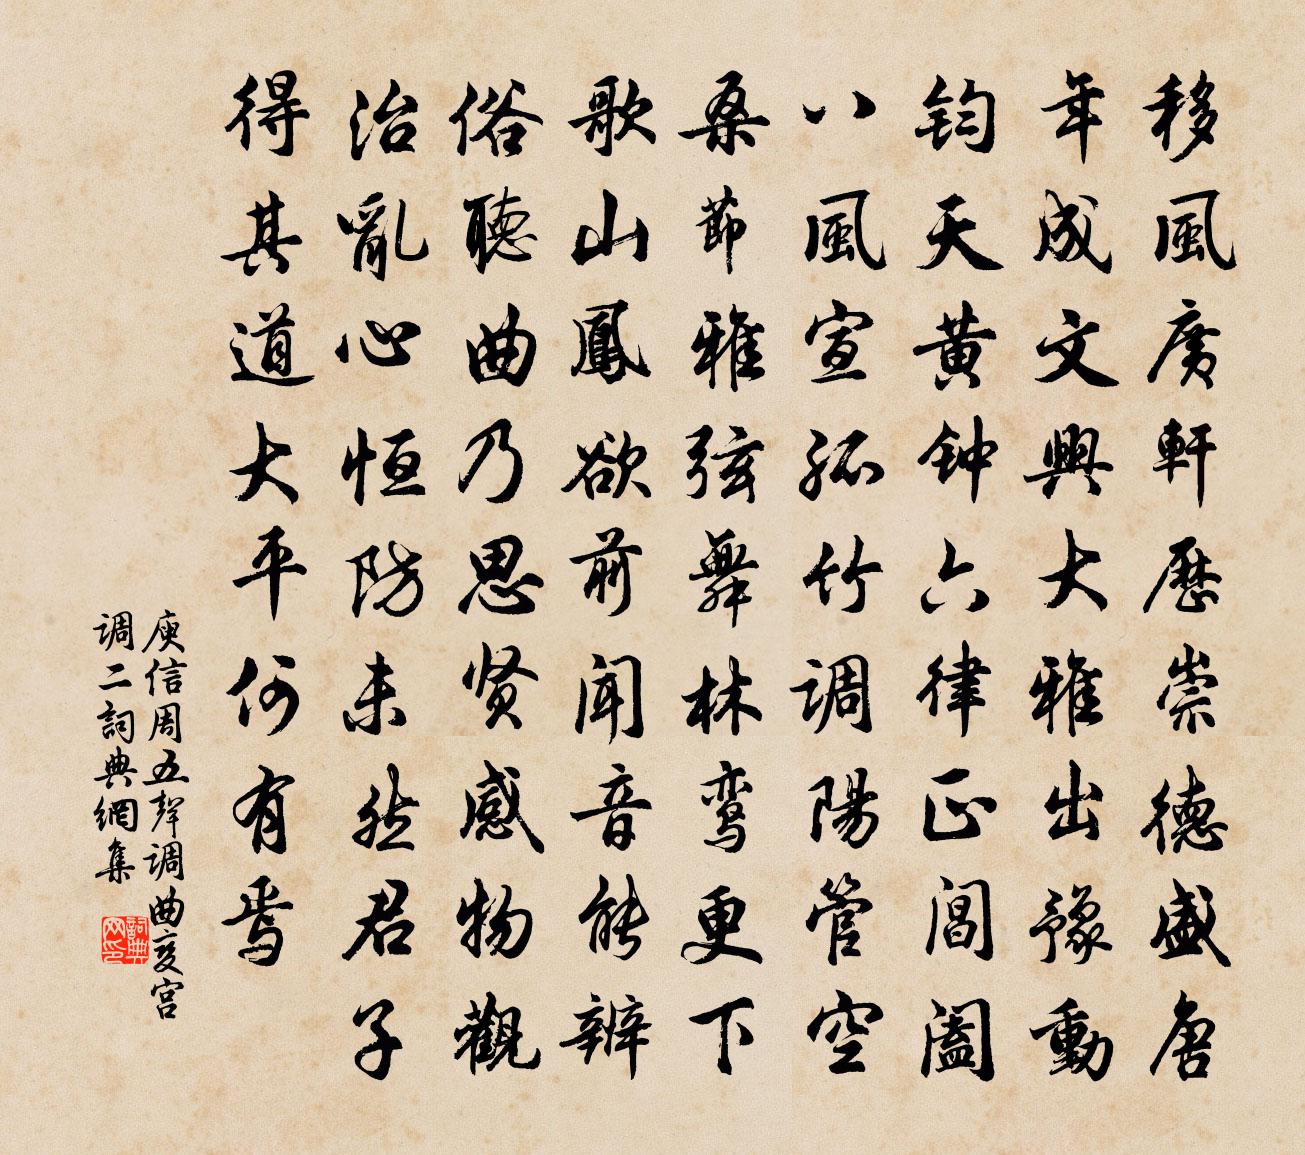 移風廣軒歷崇德盛唐
年成文興大雅出豫動
鈞天黄钟六律正閶闔
八風宣孤竹调陽管空
桑節雅弦舞林鸾更下
歌山鳳欲前聞音能辨
俗聽曲乃思贤感物觀
治亂心恒防未然君子
得其道大平何有焉
庾信周五聲调曲变宫
调二詞典網集
詞典网印